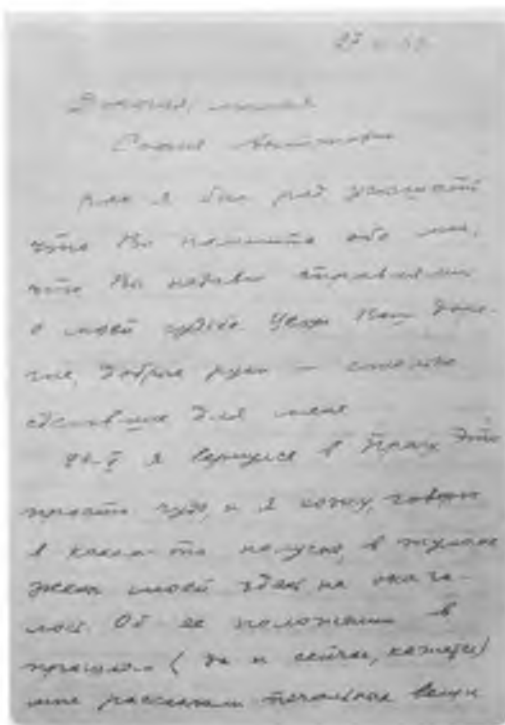 Дорогая, милая
Софья
как я был рад услышать
что Вы помните обо мне,
что Вы недавно справлялись
о моей судьбе Целую Ваши доро-
гие, добрые руки — столько
сделавшие для меня
я вернулся в Прагу Это
просто чудо, и я хожу, говорю
в каком-то полусне, в тумане
моей здесь не оказа-
лось. Об ее положении в
прошлом (да и сейчас, кажется)
мне рассказали печальные вещи